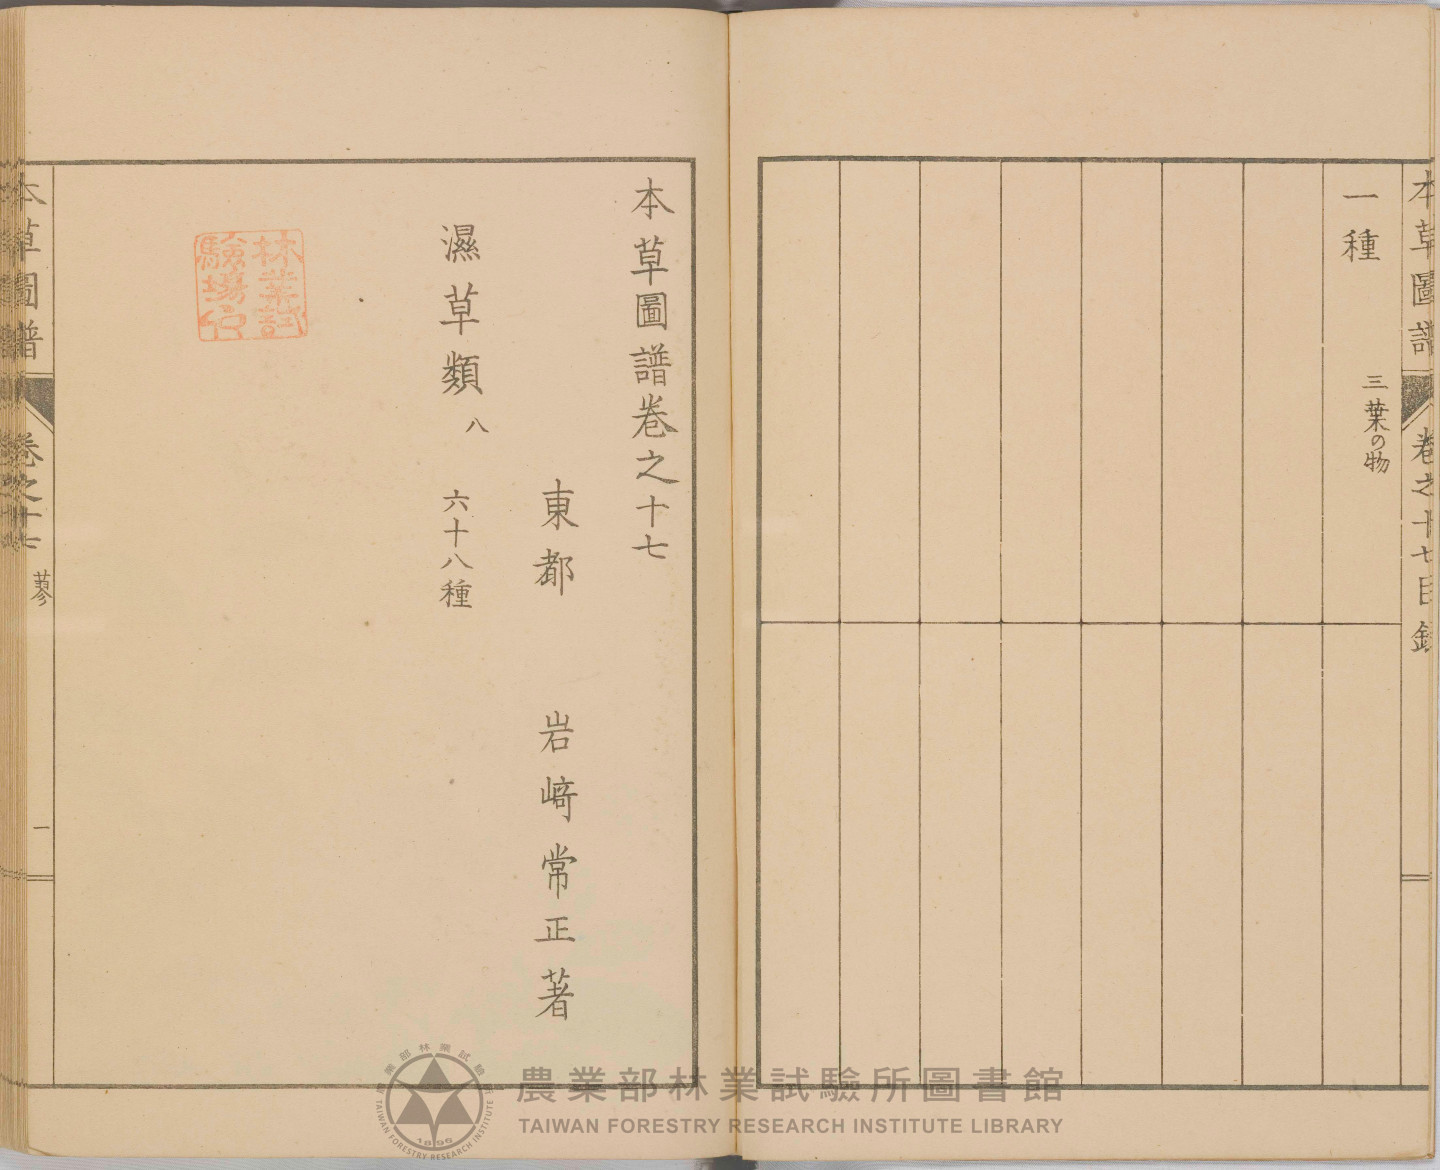 本草圖譜 卷之十七目錄
一種 三葉の物
本草圖譜卷之十七
東都 岩﨑常正著
濕草類 八 六十八種
林業試
驗場印
本草圖譜 卷之十七 蓼 一
農業部林業試驗所圖書館
TAIWAN FORESTRY RESEARCH INSTITUTE LIBRARY
農業部林業試驗所
TAIWAN FORESTRY RESEARCH INSTITUTE
1896